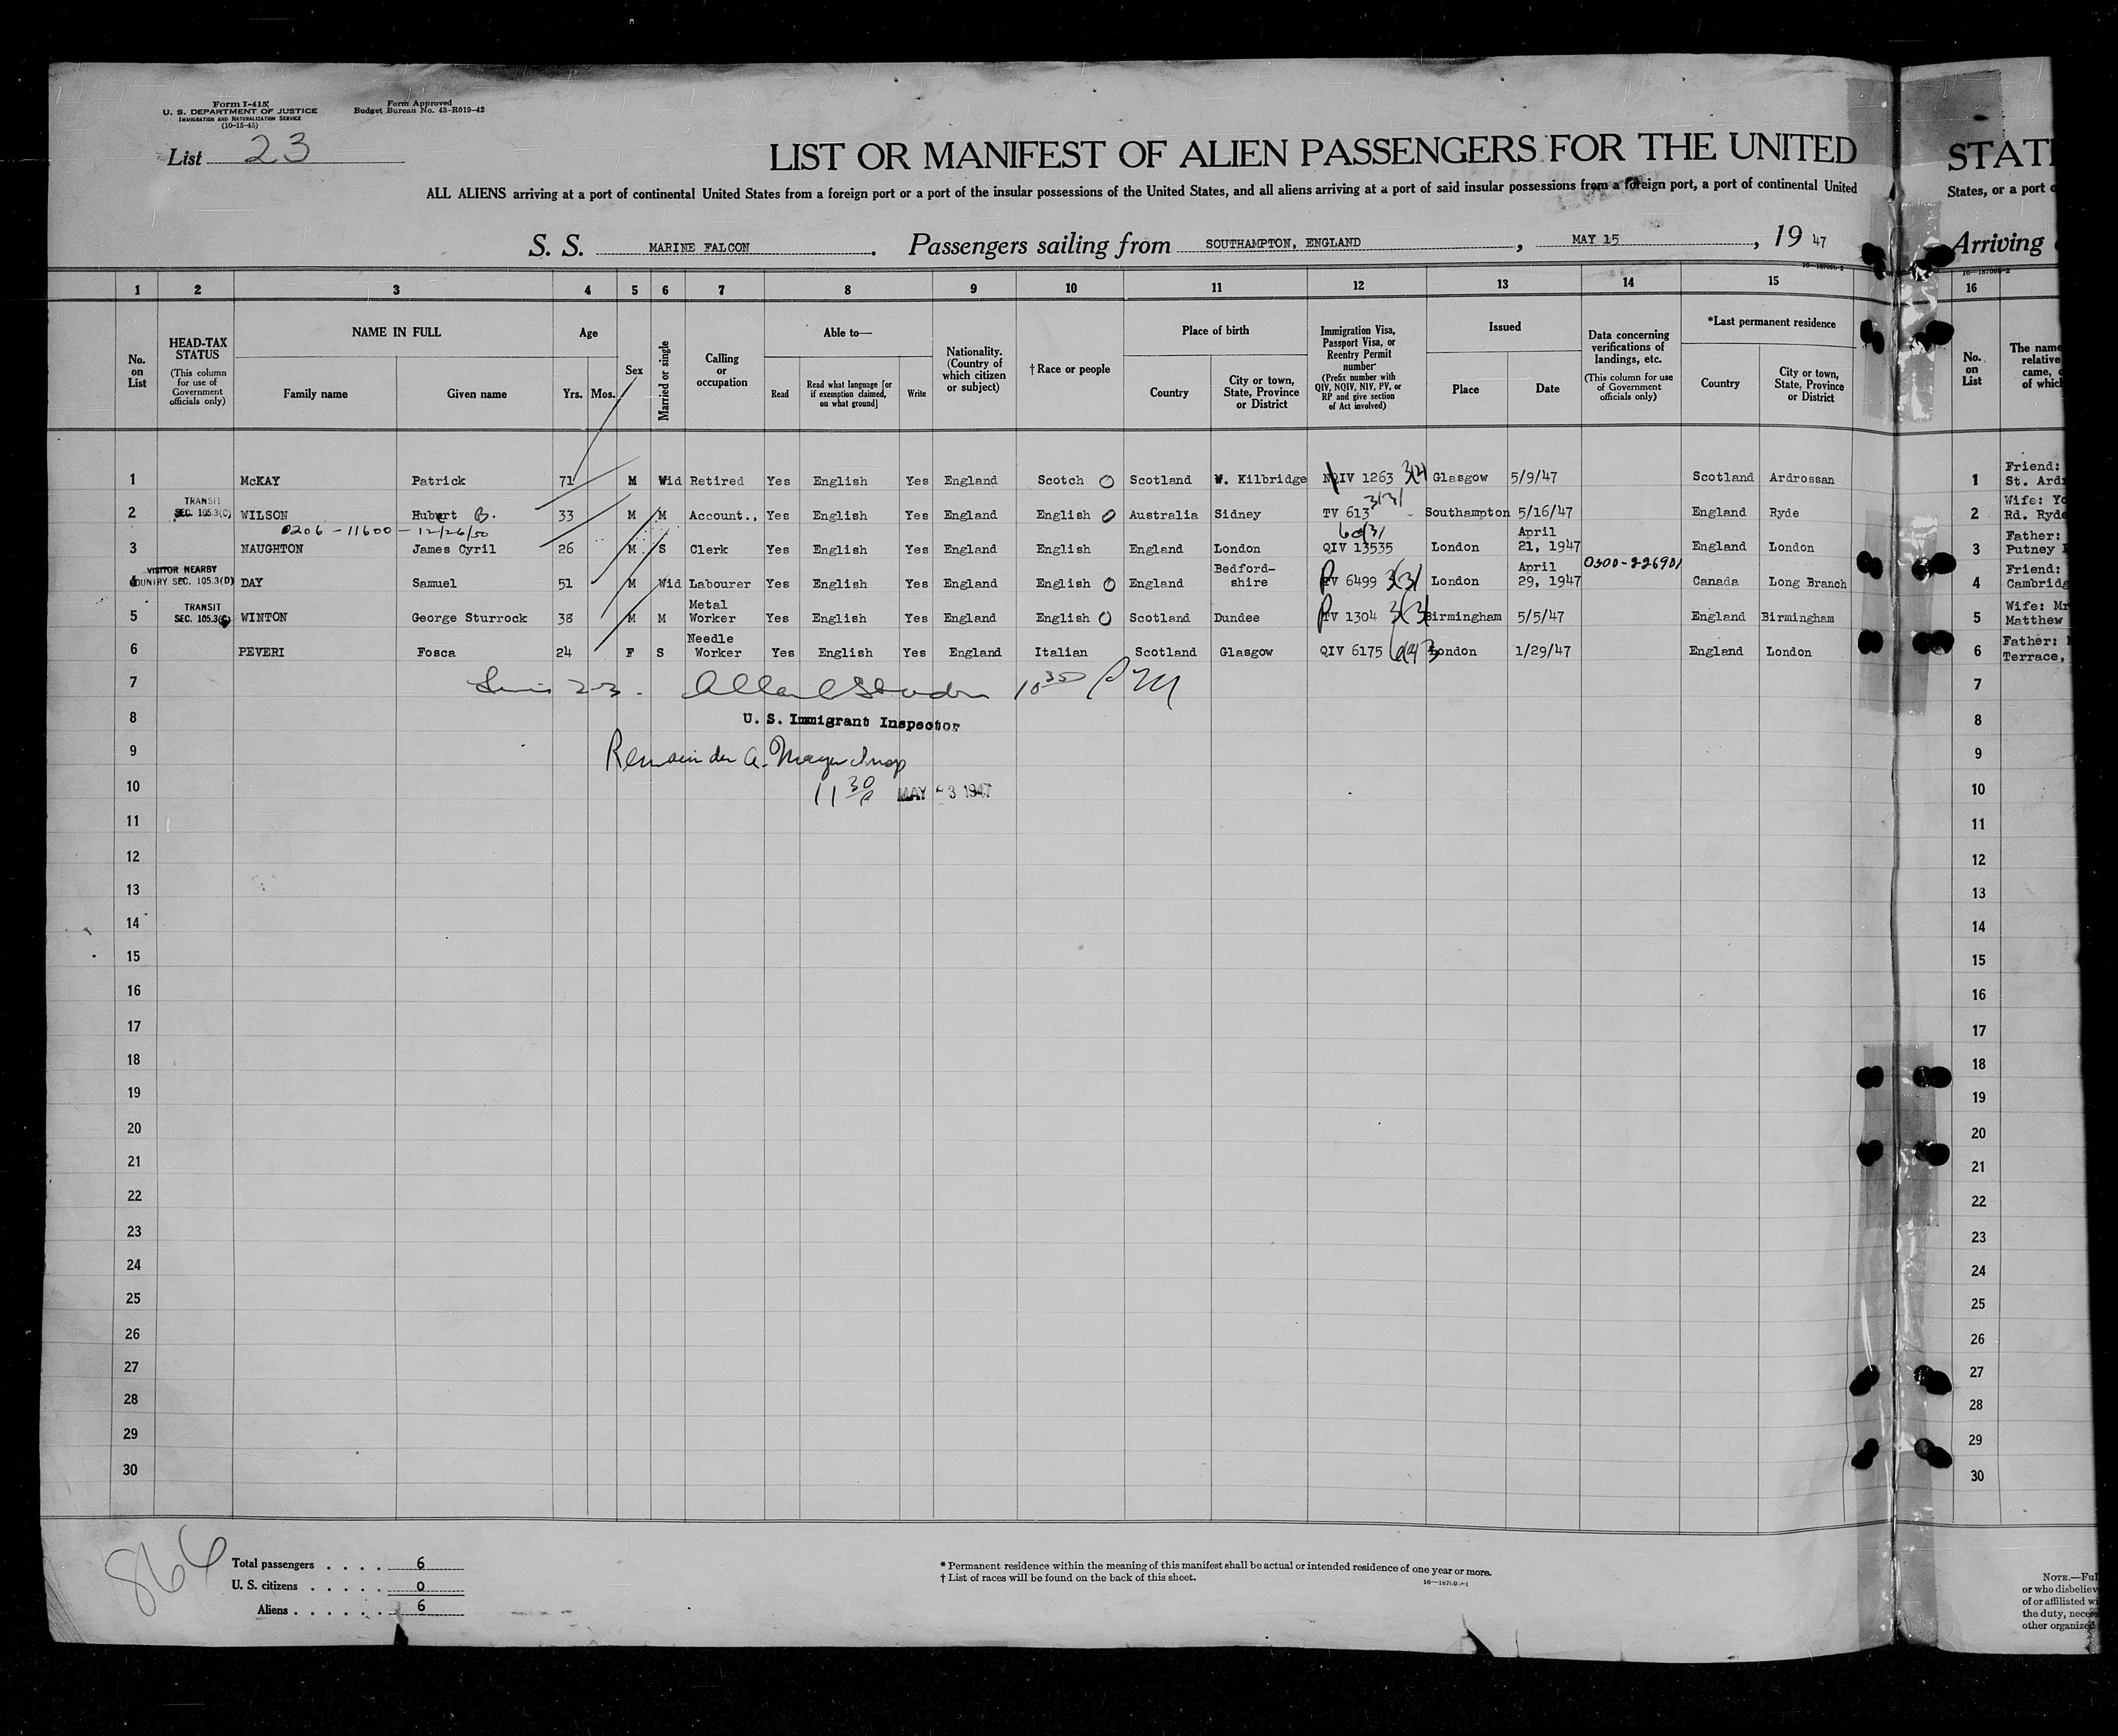 Form I-415
U. S. DEPARTMENT OF JUSTICE
IMMIGRATION AND NATURALIZATION SERVICE
(10-15-45)
Form Approved
Budget Bureau No. 43-R019-42
List 23
LIST OR MANIFEST OF ALIEN PASSENGERS FOR THE UNITED
ALL ALIENS arriving at a port of continental United States from a foreign port or a port of the insular possessions of the United States, and all aliens arriving at a port of said insular possessions from a foreign port, a port of continental United
S. S. MARINE FALCON. Passengers sailing from SOUTHAMPTON, ENGLAND, MAY 15, 1947
1 2 3 4 5 6 7 8 9 10 11 12 13 14 15
No. on List
HEAD-TAX STATUS (This column for use of Government officials only)
NAME IN FULL
Family name
Given name
Age
Yrs. Mos.
Sex
Married or single
Calling or occupation
Able to—
Read
Read what language [or if exemption claimed, on what ground]
Write
Nationality. (Country of which citizen or subject)
† Race or people
Place of birth
Country
City or town, State, Province or District
Immigration Visa, Passport Visa, or Reentry Permit number (Prefix number with QIV, NQIV, NIV, PV, or RP and give section of Act involved)
Issued
Place
Date
Data concerning verifications of landings, etc. (This column for use of Government officials only)
*Last permanent residence
Country
City or town, State, Province or District
1 McKAY Patrick 71 M Wid Retired Yes English Yes England Scotch Scotland W. Kilbridge NQIV 1263 Glasgow 5/9/47 Scotland Ardrossan
TRANSIT SEC. 105.3(C)
2 WILSON Hubert B. 33 M M Account., Yes English Yes England English Australia Sidney TV 613 3(3) Southampton 5/16/47 England Ryde
0206-11600-12/26/50
3 NAUGHTON James Cyril 26 M S Clerk Yes English Yes England English England London QIV 13535 London April 21, 1947 England London
VISITOR NEARBY COUNTRY SEC. 105.3(D)
4 DAY Samuel 51 M Wid Labourer Yes English Yes England English England Bedford-shire PV 6499 3(3) London April 29, 1947 0300-226901 Canada Long Branch
TRANSIT SEC. 105.3(C)
5 WINTON George Sturrock 38 M M Metal Worker Yes English Yes England English Scotland Dundee PV 1304 3(3) Birmingham 5/5/47 England Birmingham
6 PEVERI Fosca 24 F S Needle Worker Yes English Yes England Italian Scotland Glasgow QIV 6175 London 1/29/47 England London
7 23. 10 30 PM
8 U. S. Immigrant Inspector
9 Remainder
10 11 30 MAY 1947
11
12
13
14
15
16
17
18
19
20
21
22
23
24
25
26
27
28
29
30
866
Total passengers . . . . 6
U. S. citizens . . . . . 0
Aliens . . . . . . 6
* Permanent residence within the meaning of this manifest shall be actual or intended residence of one year or more.
† List of races will be found on the back of this sheet.
STAT
States, or a port o
Arriving
16
No. on List
The name
relative
came,
of which
1 Friend:
St. Ard
2 Wife:
Rd. Ryde
3 Father:
Putney
4 Friend:
Cambridg
5 Wife: Mr
Matthew
6 Father:
Terrace,
7
8
9
10
11
12
13
14
15
16
17
18
19
20
21
22
23
24
25
26
27
28
29
30
NOTE.—Ful
or who disbeliev
of or affiliated wi
the duty, neces
other organize